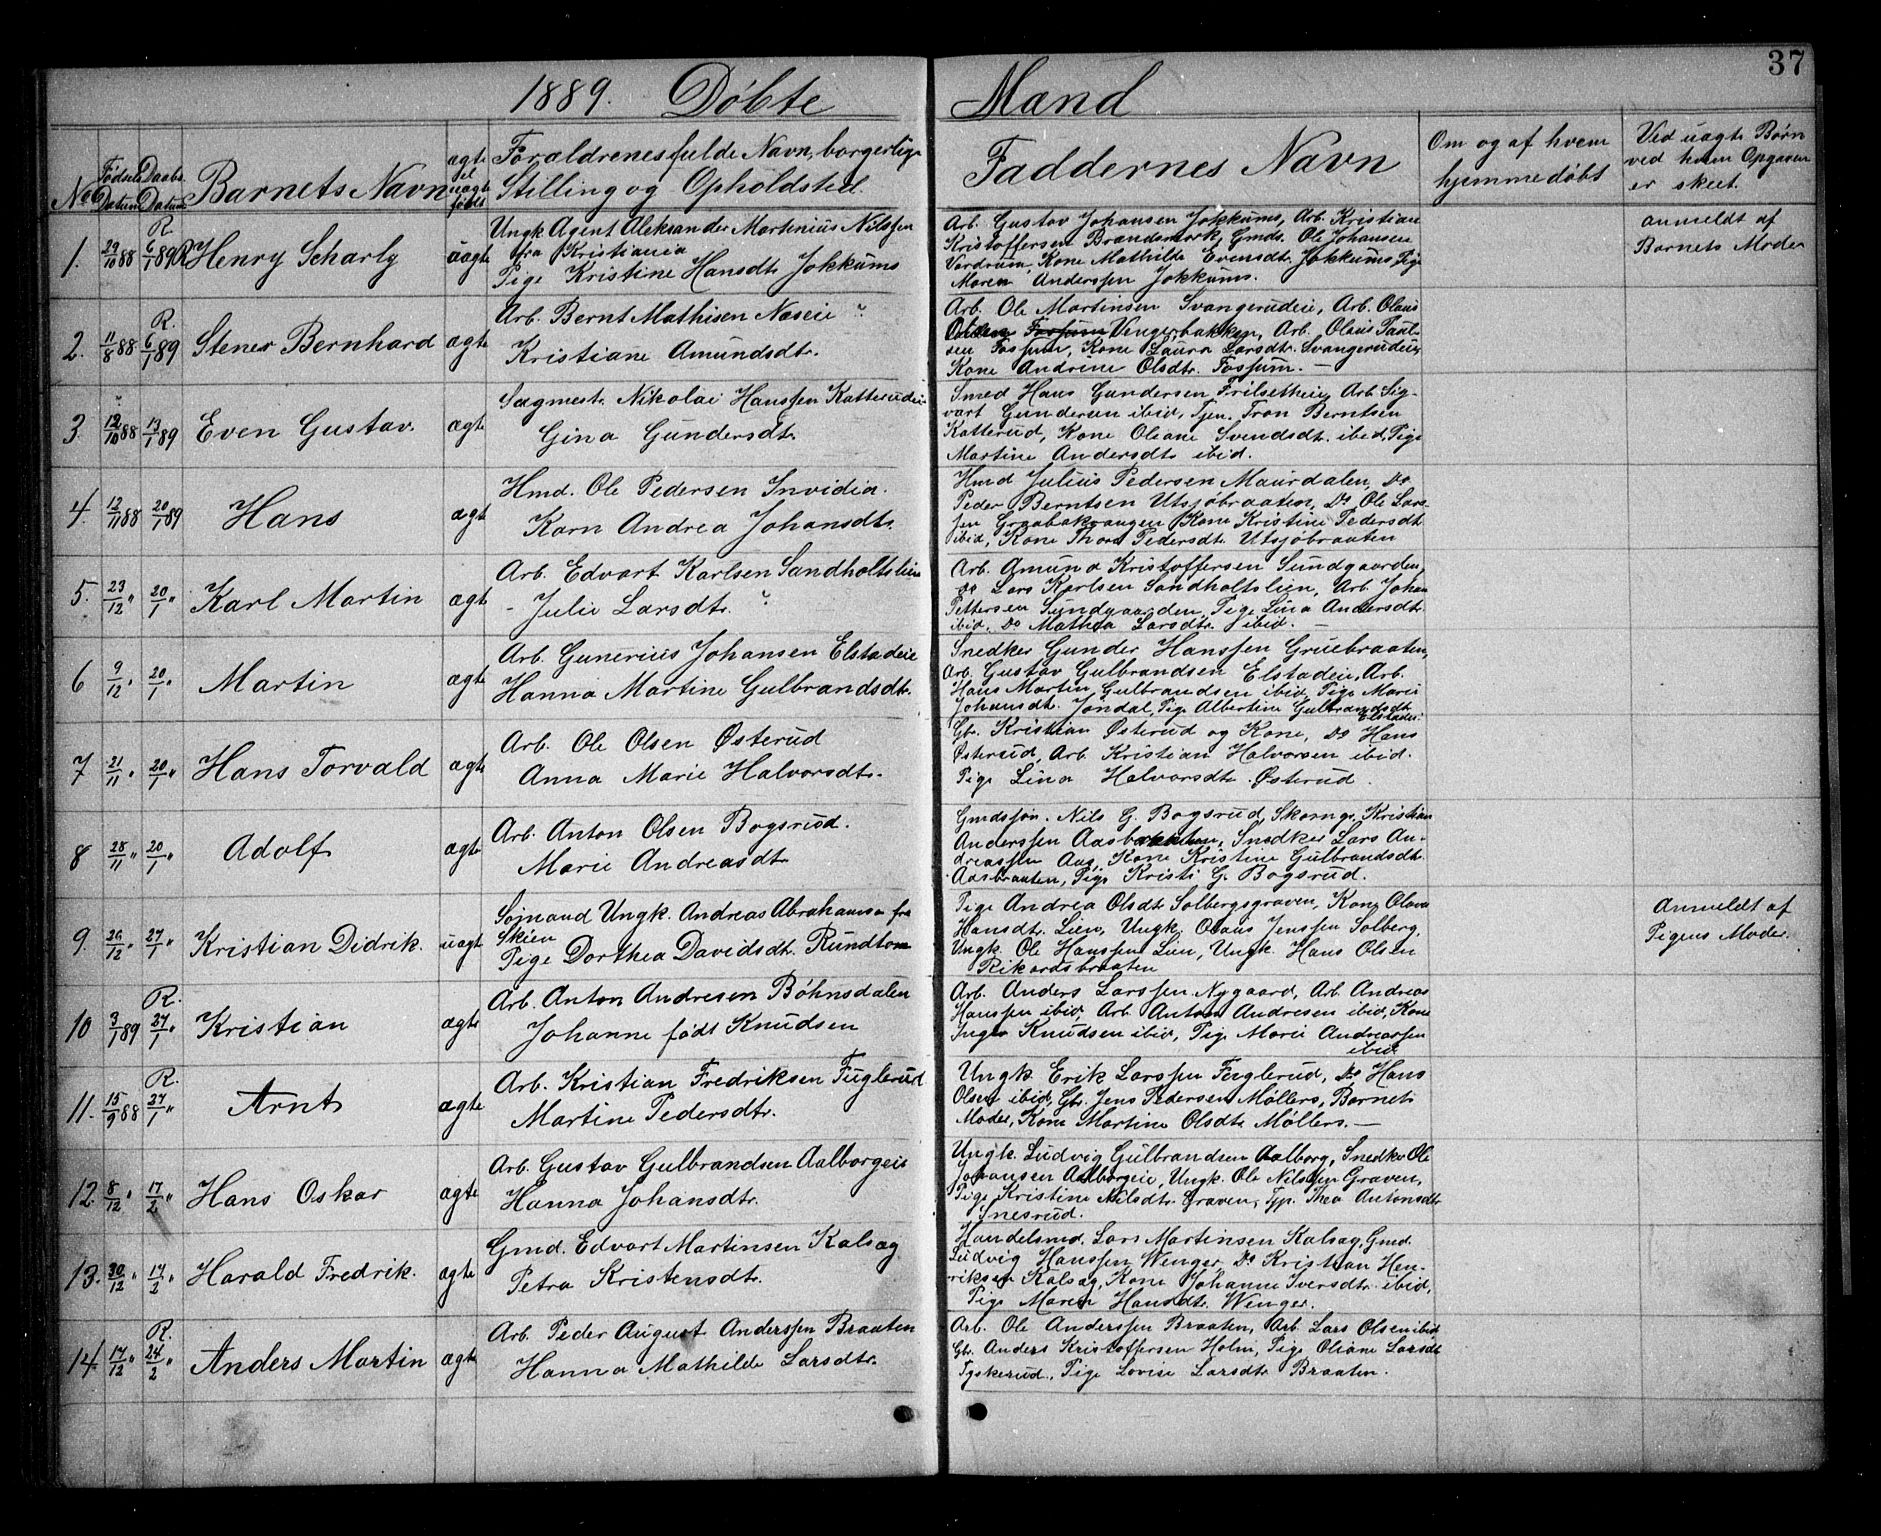 37
1889. Døbte Mand
No Fødsels Datum Daabs Datum Barnets Navn ægte el uægte født Forældrenes fulde Navn, borgerlige Stilling og Opholdsted.
Faddernes Navn
Om og af hvem hjemmedøbt
Ved uægte Børn ved hvem Opgaven er skeet.
1. 29/10 88 R. 6/1 89 Henry Scharly uægte
Ungk. Agent Aleksander Martinius Nilssen
fra Kristiania
Pige Kristine Hansdtr. Jokkums
Arb. Gustav Johansen Jokkums, Arb. Kristian
Kristoffersen Brændsmork, Gmds. Ole Johansen
Vardrum, Kone Mathilde Evensdtr. Jokkums, Pige
Maren Anderssen Jokkums.
anmeldt af
Barnets Moder
2. 11/8 88 R. 6/1 89 Stener Bernhard ægte
Arb. Bernt Mathisen Næseie
Kristiane Amundsdtr.
Arb. Ole Martinsen Svangerudeie, Arb. Olaus
Fossum Vengerbakken, Arb. Olaus Paul-
sen Fossum, Kone Laura Larsdtr. Svangerudeie,
Kone Andrine Olsdtr. Fossum. —
3. 12/10 88 13/1 89 Even Gustav. ægte
Sagmestr. Nikolai Hanssen Katterudeie
Gina Gundersdtr.
Smed Hans Gundersen Frilsetheie, Arb. Sig-
vart Gundersen ibid, Tjen. Tron Berntsen
Katterud, Kone Oliane Svendsdtr. ibid, Pige
Martine Andersdtr ibid.
4. 12/11 88 20/1 89 Hans ægte
Hmd. Ole Pedersen Invidia.
Karn Andrea Johansdtr.
Hmd Julius Pedersen Maurdalen, Do
Peder Berntsen Utsjøbraaten, Do Ole Lars-
sen Graabakvangen, Kone Kristine Pedersdtr
ibid, Kone Thora Pedersdtr. Utsjøbraaten
5. 23/12 " 20/1 " Karl Martin ægte
Arb. Edvart Karlsen Sandholtslien
- Julie Larsdtr.
Arb. Amund Kristoffersen Sundgaarden,
Do Lars Karlsen Sandholtslien, Arb. Johan
Pettersen Sundgaarden, Pige Lina Andersdtr.
ibid, Do Mathea Larsdtr. ibid. —
6 9/12 " 20/1 " Martin ægte
Arb. Gunerius Johansen Elstadeie
Hanna Martine Gulbrandsdtr.
Snedker Gunder Hanssen Gruebraaten,
Arb. Gustav Gulbrandsen Elstadeie, Arb.
Hans Martin Gulbrandsen ibid, Pige Marie
Johansdtr. Jøndal, Pige Albertine Gulbrandsdtr
Elstadei.
7 21/11 " 20/1 " Hans Torvald ægte
Arb. Ole Olsen Østerud
Anna Marie Halvorsdtr.
Gbr. Kristian Østerud og Kone, Do Hans
Østerud, Arb. Kristian Halvorsen ibid.
Pige Lina Halvorsdtr. Østerud.
8 28/11 " 20/1 " Adolf ægte
Arb. Anton Olsen Bogsrud.
Marie Andreasdtr
Gmdssøn. Nils G. Bogsrud, Skomgr. Kristian
Anderssen Aasbraaten, Snedker Lars An-
dreassen Aas, Kone Kristine Gulbrandsdtr.
Aasbraaten, Pige Kristi G. Bogsrud.
9. 26/12 " 27/1 " Kristian Didrik. uægte
Sømand Ungk. Andreas Abrahamsen fra
Skien
Pige Dorthea Davidsdtr. Rundtom
Pige Andrea Olsdtr Solbergsgraven, Kone Olava
Hansdtr. Lien, Ungk. Olaus Jenssen Solberg,
Ungk Ole Hanssen Lien, Ungk. Hans Olsen
Rikardsbraaten
Anmeldt af
Pigens Moder.
10 3/1 89 R. 27/1 " Kristian ægte
Arb. Anton Andresen Bøhnsdalen
Johanne født Knudsen
Arb. Anders Larssen Nygaard, Arb. Andreas
Hanssen ibid, Arb Anton Andresen ibid, Kone
Inger Knudsen ibid, Pige Marie Andreassen
ibid
11. 15/9 88 R. 27/1 " Arnt ægte
Arb. Kristian Fredriksen Fuglerud
Martine Pedersdtr.
Ungk. Erik Larssen Fuglerud, Do Hans
Olsen ibid, Gbr. Jens Pedersen Møllers, Barnets
Moder, Kone Martine Olsdtr Møllers. —
12. 8/12 " 17/2 " Hans Oskar ægte
Arb. Gustav Gulbrandsen Aalborgeie
Hanna Johansdtr.
Ungk. Ludvig Gulbrandsen Aalborg, Snedker Ole
Johansen Aalborgeie, Ungk. Ole Nilssen Graven,
Pige Kristine Nilsdtr. Graven, Tjp. Thea Antonsdtr
Snesrud.
13. 30/12 " 17/2 " Harald Fredrik. ægte
Gmd. Edvart Martinsen Kalsæg
Petra Kristensdtr.
Handelsmd. Lars Martinsen Kalsæg, Gmd.
Ludvig Hanssen Wenger, Do Kristian Hen-
riksen Kalsæg, Kone Johanne Iversdtr. ibid,
Pige Maren Hansdtr. Wenger.
14. 17/12 " R. 24/2 " Anders Martin ægte
Arb. Peder August Anderssen Braaten
Hanna Mathilde Larsdtr.
Arb. Ole Anderssen Braaten, Arb. Lars Olsen ibid
Gbr. Anders Kristoffersen Holm, Pige Oliane Larsdtr
Tyskerud, Pige Lovise Larsdtr Braaten.